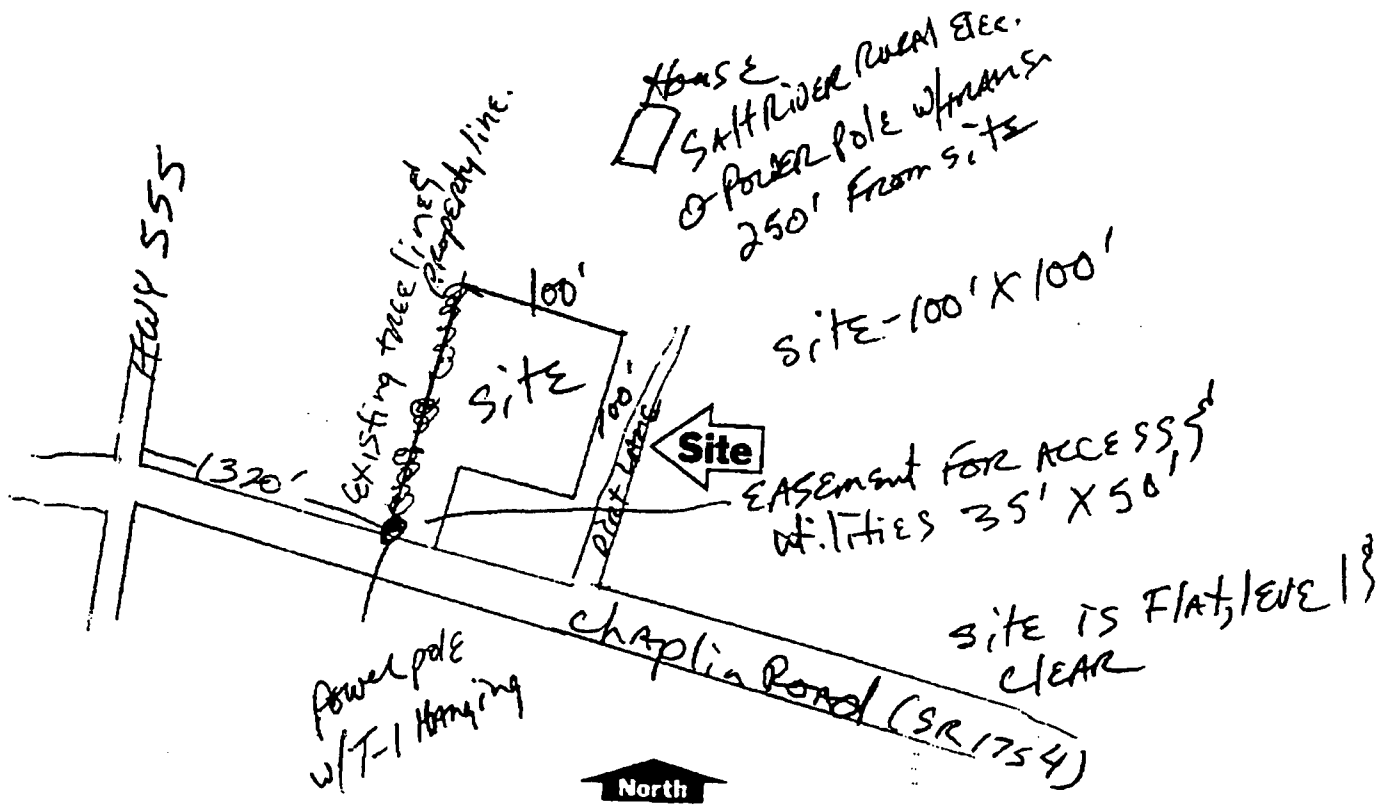 House
SAltRivER RuRAl ElEc.
O-PowER PolE w/tRANS.
250' From sitE
HWY 555
Existing tREE line &
Property line.
100'
SitE
100'
sitE-100' X 100'
Site
1320'
DiRt LANE
EASEmEnt FoR AccESS, &
utilitiEs 35' X 50'
sitE is FlAt, lEvEl &
clEAR
ChAplin RoAd (SR 1754)
Power polE
w/T-1 HAnging
North